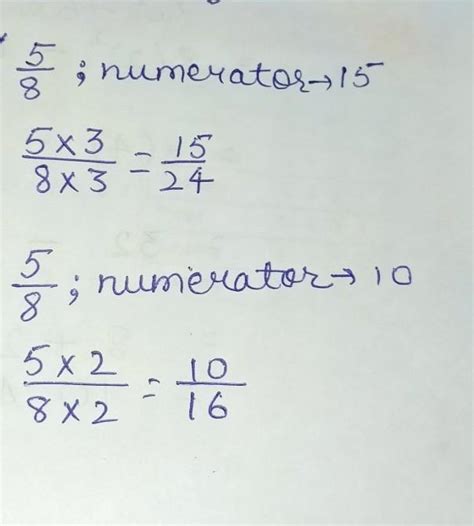 5/8 ; numerator → 15
5 × 3 / 8 × 3 = 15/24
5/8 ; numerator → 10
5 × 2 / 8 × 2 = 10/16